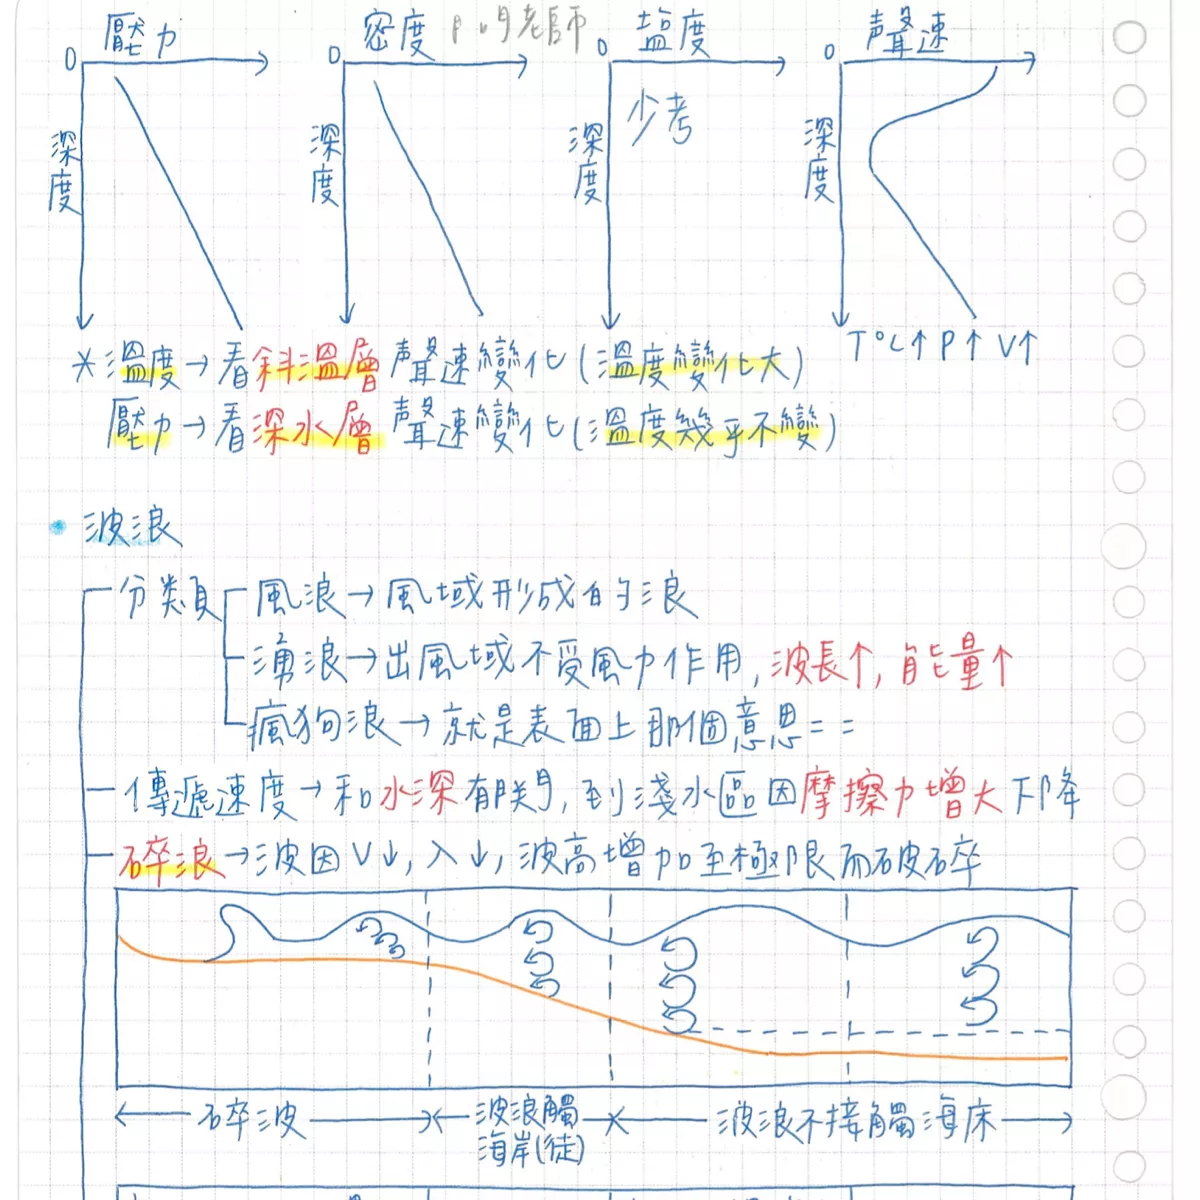 0 壓力 0 密度 0 塩度 0 聲速
深度 深度 深度 少考 深度
T℃↑ P↑ V↑
*溫度→看斜溫層聲速變化(溫度變化大)
壓力→看深水層聲速變化(溫度幾乎不變)
波浪
分類 風浪→風域形成的浪
湧浪→出風域不受風力作用,波長↑,能量↑
瘋狗浪→就是表面上那個意思==
傳遞速度→和水深有関,到淺水區因摩擦力增大下降
碎浪→波因V↓,入↓,波高增加至極限而破碎
碎波 波浪觸海岸(徒) 波浪不接觸海床